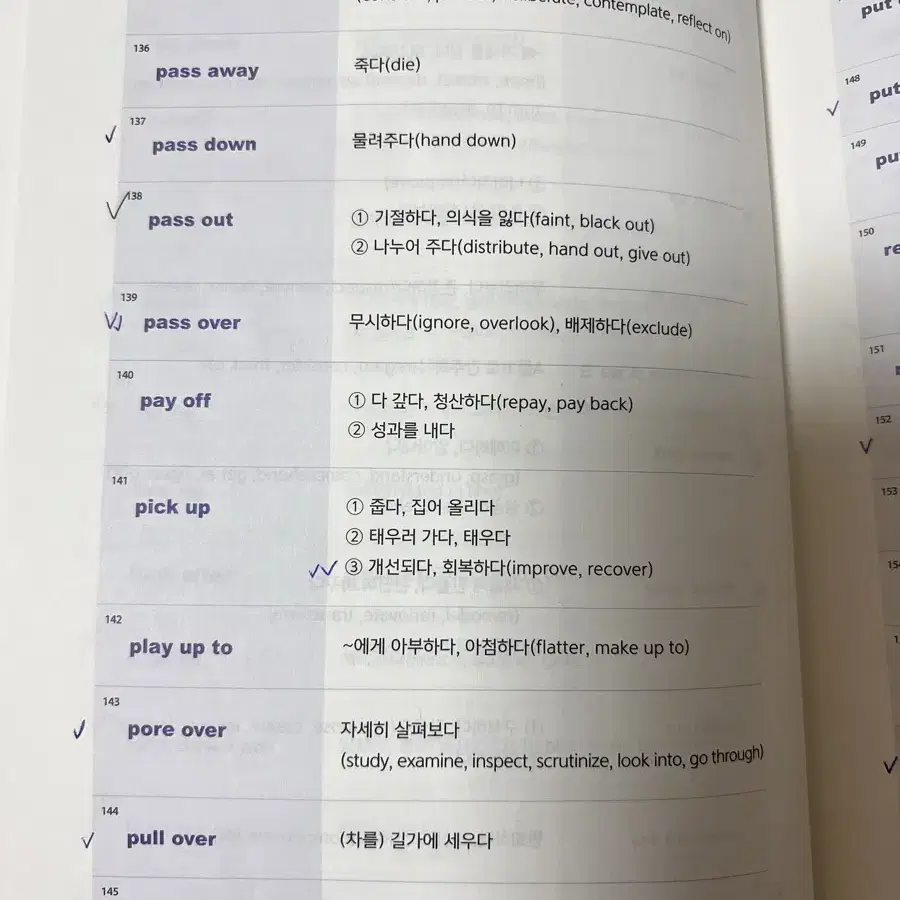 contemplate, reflect on)
136
pass away 죽다(die)
137
pass down 물려주다(hand down)
138
pass out ① 기절하다, 의식을 잃다(faint, black out)
② 나누어 주다(distribute, hand out, give out)
139
pass over 무시하다(ignore, overlook), 배제하다(exclude)
140
pay off ① 다 갚다, 청산하다(repay, pay back)
② 성과를 내다
141
pick up ① 줍다, 집어 올리다
② 태우러 가다, 태우다
③ 개선되다, 회복하다(improve, recover)
142
play up to ~에게 아부하다, 아첨하다(flatter, make up to)
143
pore over 자세히 살펴보다
(study, examine, inspect, scrutinize, look into, go through)
144
pull over (차를) 길가에 세우다
145
put
148
put
149
150
151
152
153